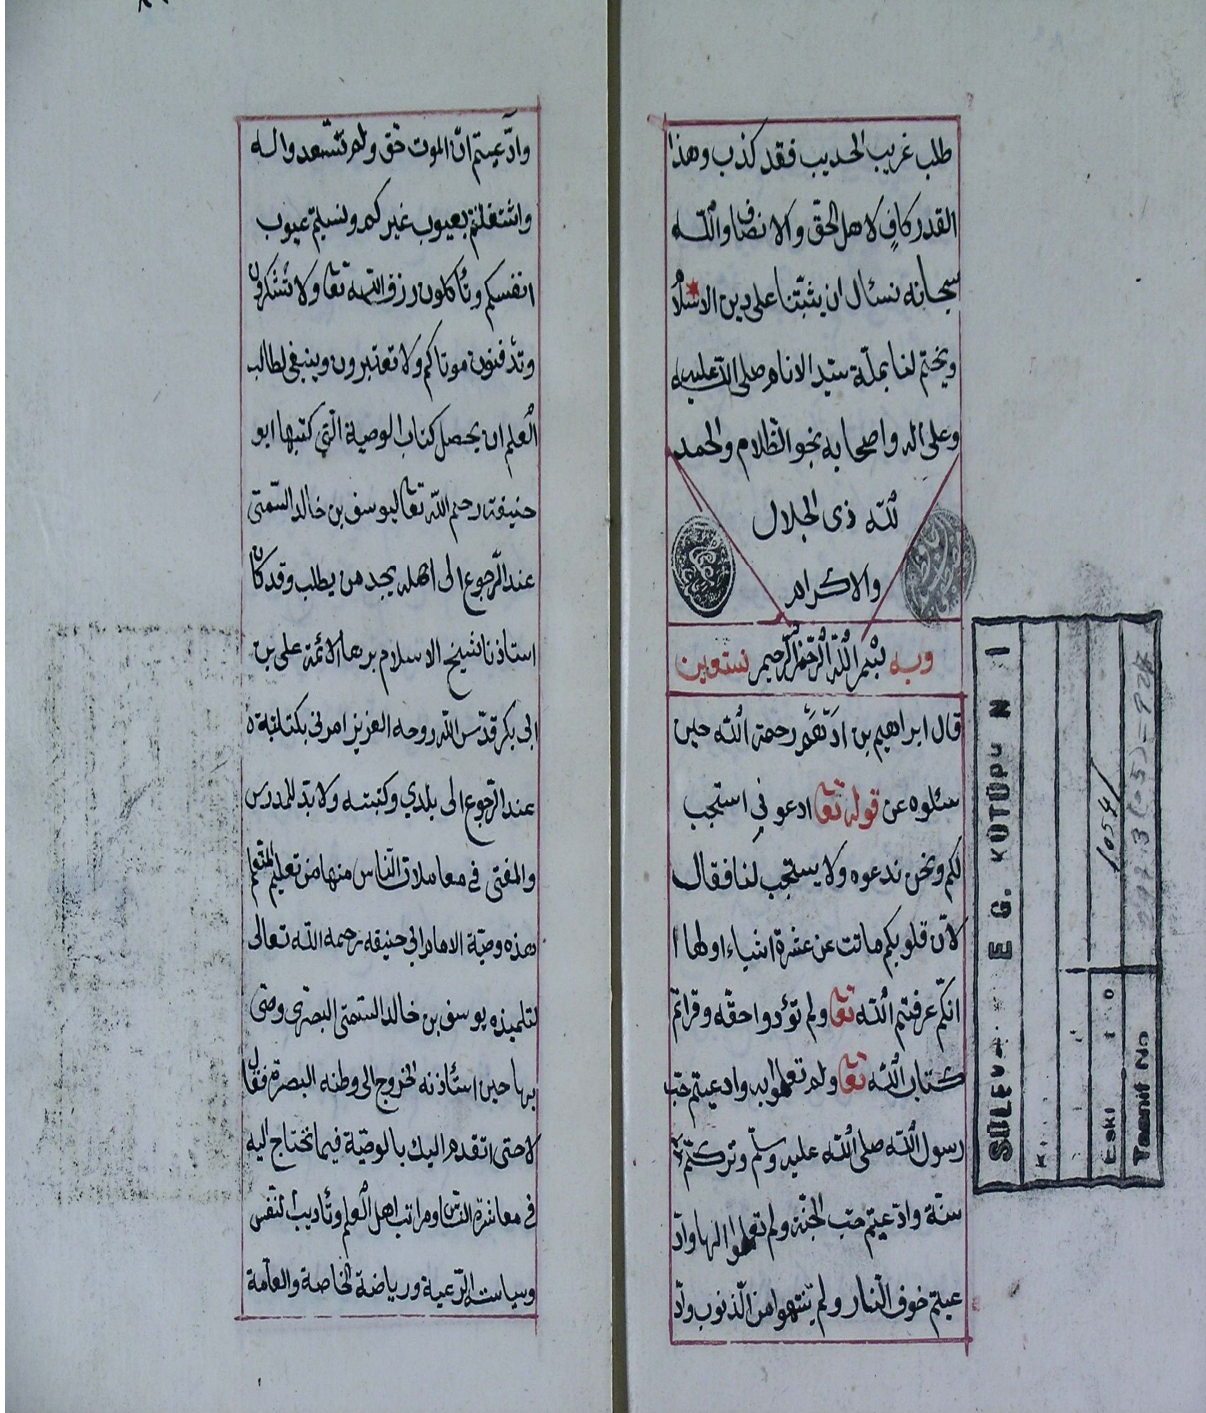 طلب غريب الحديب فقد كذب وهذا
القدر كافٍ لاهل الحقّ والانصاف والله
سبحانه نسئال ان يثبّتنا على دين الاسلام
ويختم لنا بملّة سيّد الانام صلى الله عليه
وعلى اله واصحابه نجو الظّلام والحمد
لله ذى الجلال
والاكرام
وبه بسم الله الرحمن الرحيم نستعين
قال ابراهيم بن ادهم رحمة الله حين
سئلوه عن قوله تعا ادعونى استجب
لكم ونحن ندعوه ولا يستجب لنا فقال
لانّ قلوبكم ماتت عن عشرة اشياء اولها
انكم عرفتم الله تعا ولم تؤدوا حقه وقراتم
كتاب الله تعا ولم تعملوا به وادعيتم حبّ
رسول الله صلى الله عليه وسلّم وتركتم
سنّة وادّعيتم حبّ الجنّة ولم تعملوا لها وادّ
عيتم خوف النّار ولم تنتهوا من الذنوب وادّ
وادّعيتم انّ الموت حق ولم تستعدوا له
واشتغلتم بعيوب غيركم ونسيتم عيوب
انفسكم وتأكلون رزق الله تعا ولا تشكرون
وتدفنون موتاكم ولا تعتبرون وينبغى لطالب
العلم ان يحصل كتاب الوصية الّتي كتبها ابو
حنيفة رحم الله تعا ليوسف بن خالد السّمتى
عند الرّجوع الى اهله يجد من يطلب وقد كان
استاذنا شيخ الاسلام برهان الائمّة على بن
ابى بكر قدّس الله روحه العزيز امرنى بكتابته
عند الرّجوع الى بلدي وكتبته ولا بدّ للمدرس
والمفتى فى معاملات النّاس منها من تعليم المتعلم
هذه وصيّة الامام ابى حنيفه رحمه الله تعالى
لتلميذه يوسف بن خالد السّمتى البصرى وصّى
بها حين استأذنه الخروج الى وطنه البصرة فقال
لا حتى اتقدم اليك بالوصيّة فيما تحتاج اليه
فى معاشرة النّاس ومراتب اهل العلم وتأديب النّفس
وسياست الرّعية ورياضة الخاصة والعامّة
SÜLEY E G. KÜTÜP N I
K
Eski 1054
Tasnif No 297.3